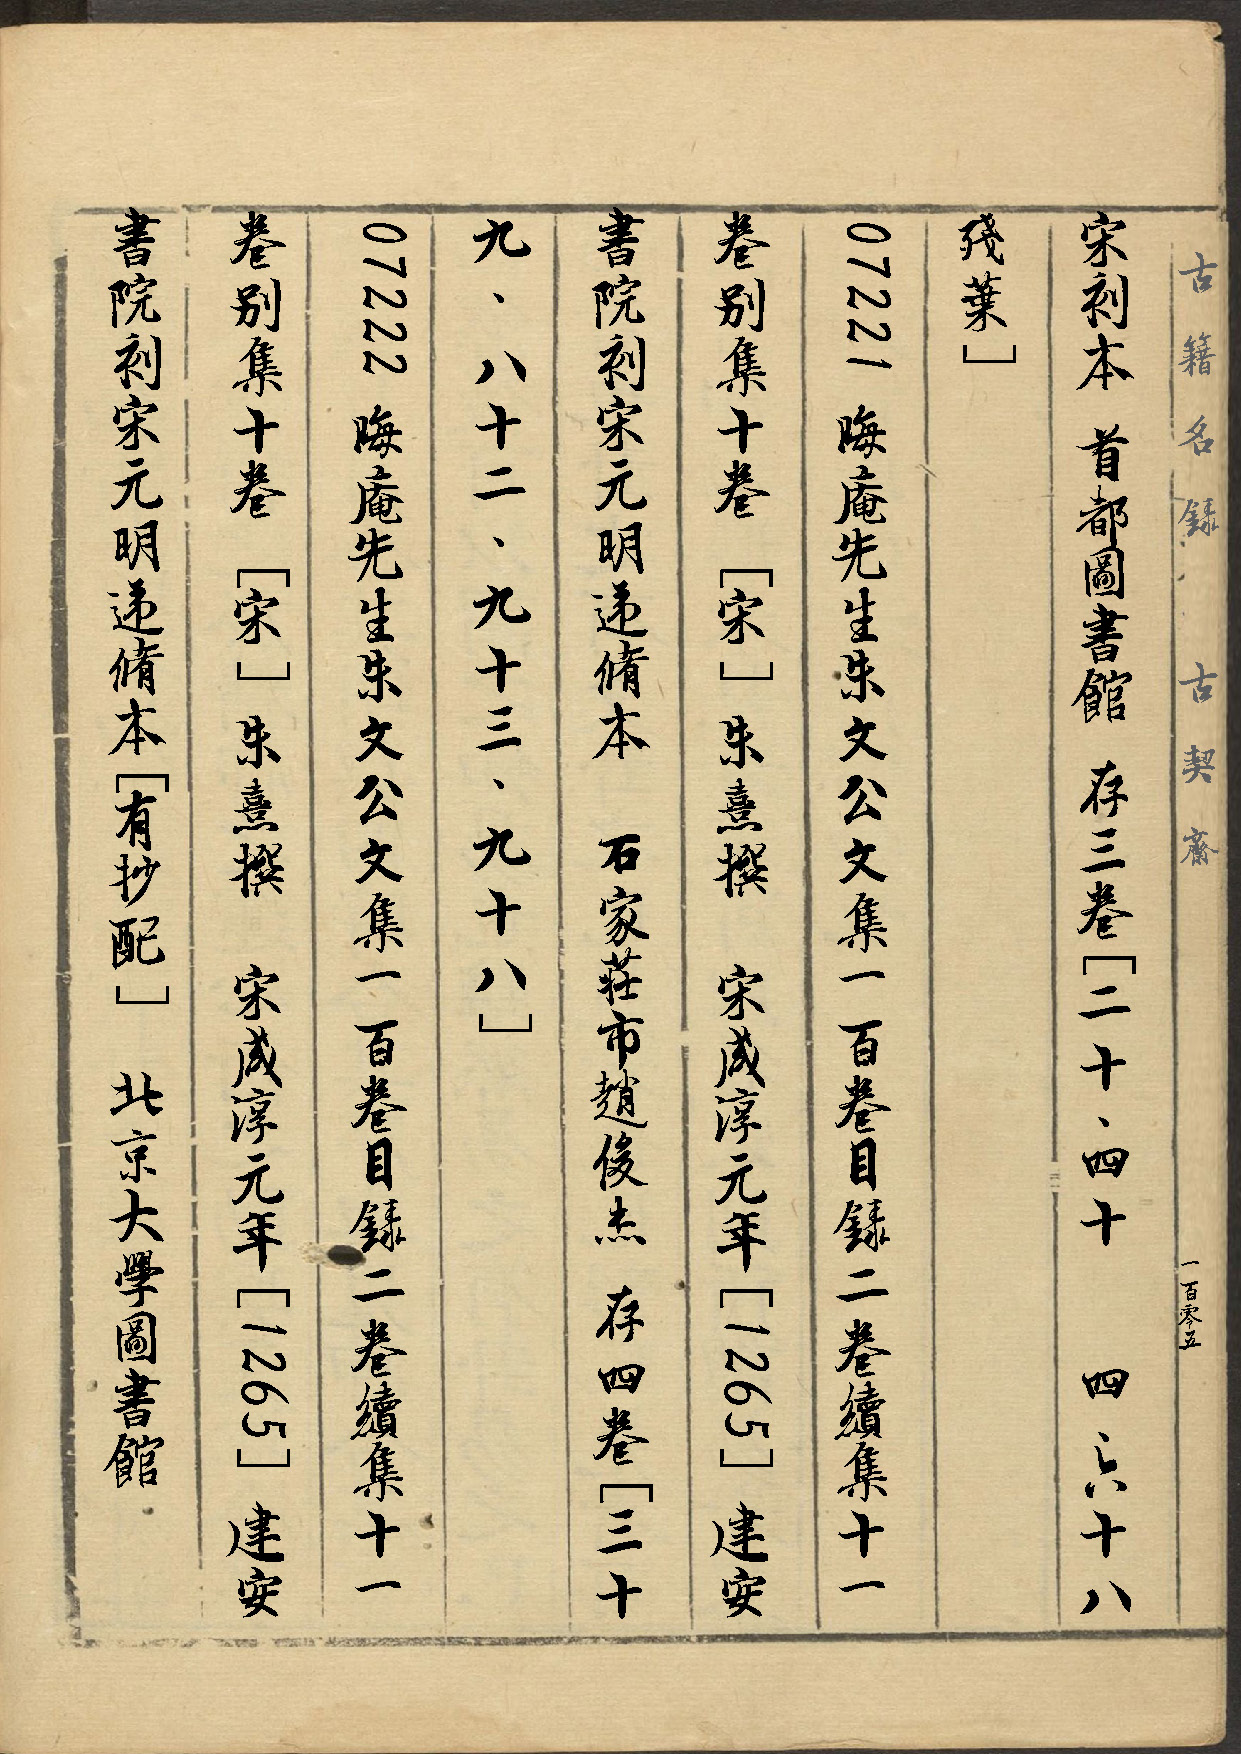 古籍名錄 古契齋
一百零五
宋刻本 首都圖書館 存三卷[二十、四十 四、六十八
殘葉]
07221 晦庵先生朱文公文集一百卷目錄二卷續集十一
卷别集十卷 [宋] 朱熹撰 宋咸淳元年[1265] 建安
書院刻宋元明遞脩本 石家莊市趙俊杰 存四卷[三十
九、八十二、九十三、九十八]
07222 晦庵先生朱文公文集一百卷目錄二卷續集十一
卷别集十卷 [宋] 朱熹撰 宋咸淳元年[1265] 建安
書院刻宋元明遞脩本[有抄配] 北京大學圖書館